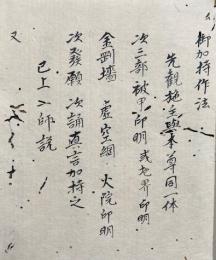 御加持作法
先観施主與本尊同一体
次三部被甲印明或九界印明
金剛墻 虚空網 火院印明
次發願 次誦真言加持之
已上 師説
又